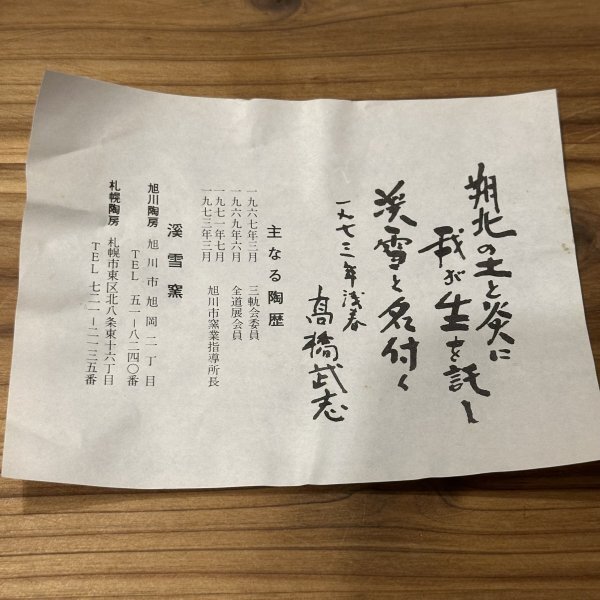 朔北の土と炎に
我が生を託し
渓雪と名付く
一九七三年浅春
髙橋武志
主なる陶歴
一九六七年三月 三軌会委員
一九六九年六月 全道展会員
一九七一年七月
一九七三年三月 旭川市窯業指導所長
溪雪窯
旭川陶房 旭川市旭岡二丁目
TEL 五一―八二四〇番
札幌陶房 札幌市東区北八条東十六丁目
TEL 七二一―二一三五番